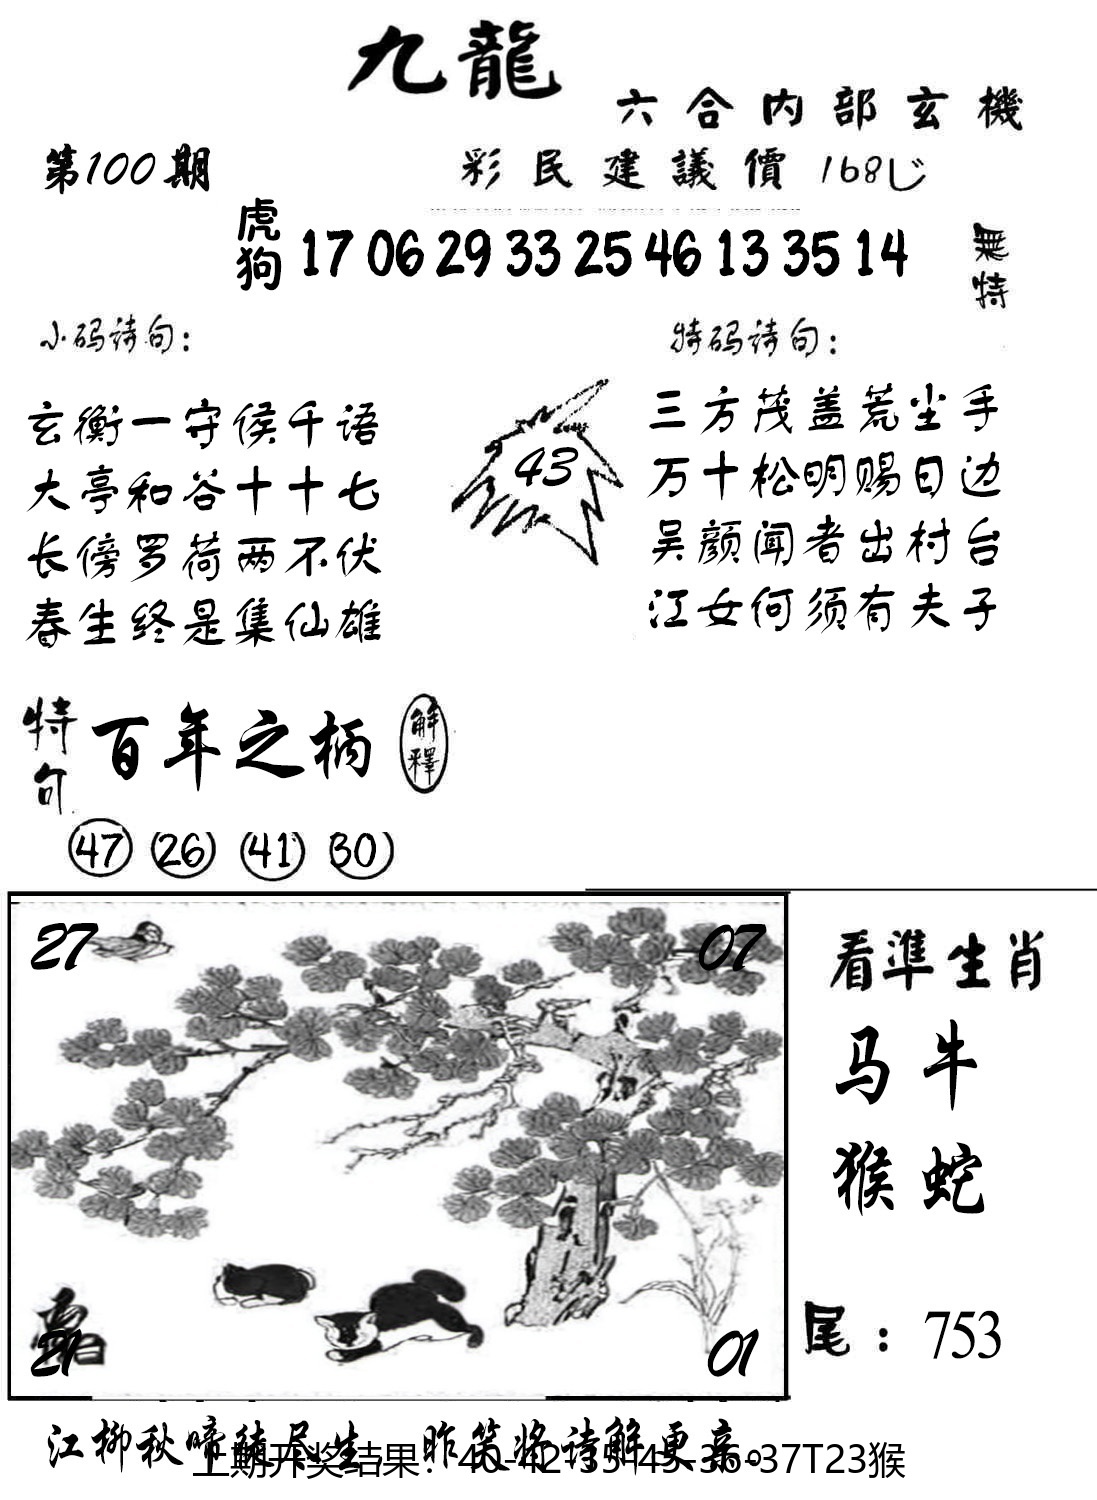 九龍
六合内部玄機
第100期
彩民建議價 168じ
虎狗 17 06 29 33 25 46 13 35 14
無特
小码诗句：
玄衡一守侯千语
大亭和谷十十七
长傍罗荷两不伏
春生终是集仙雄
43
特码诗句：
三方茂盖荒尘手
万十松明赐日边
吴颜闻者出村台
江女何须有夫子
特句 百年之柄 解釋
47 26 41 30
27 07
21 01
看準生肖
马牛
猴蛇
尾：753
江柳秋啼 尽生 昨笑将诗解更亲。
上期开奖结果：40-42-35-45-36-37T23猴